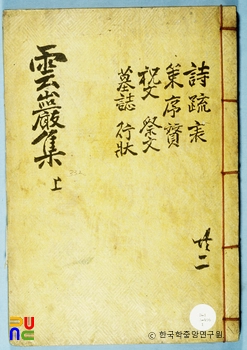 詩疏表
策序贊
祝文 祭文
墓誌 行狀
共二
雲巖集 上
© 한국학중앙연구원